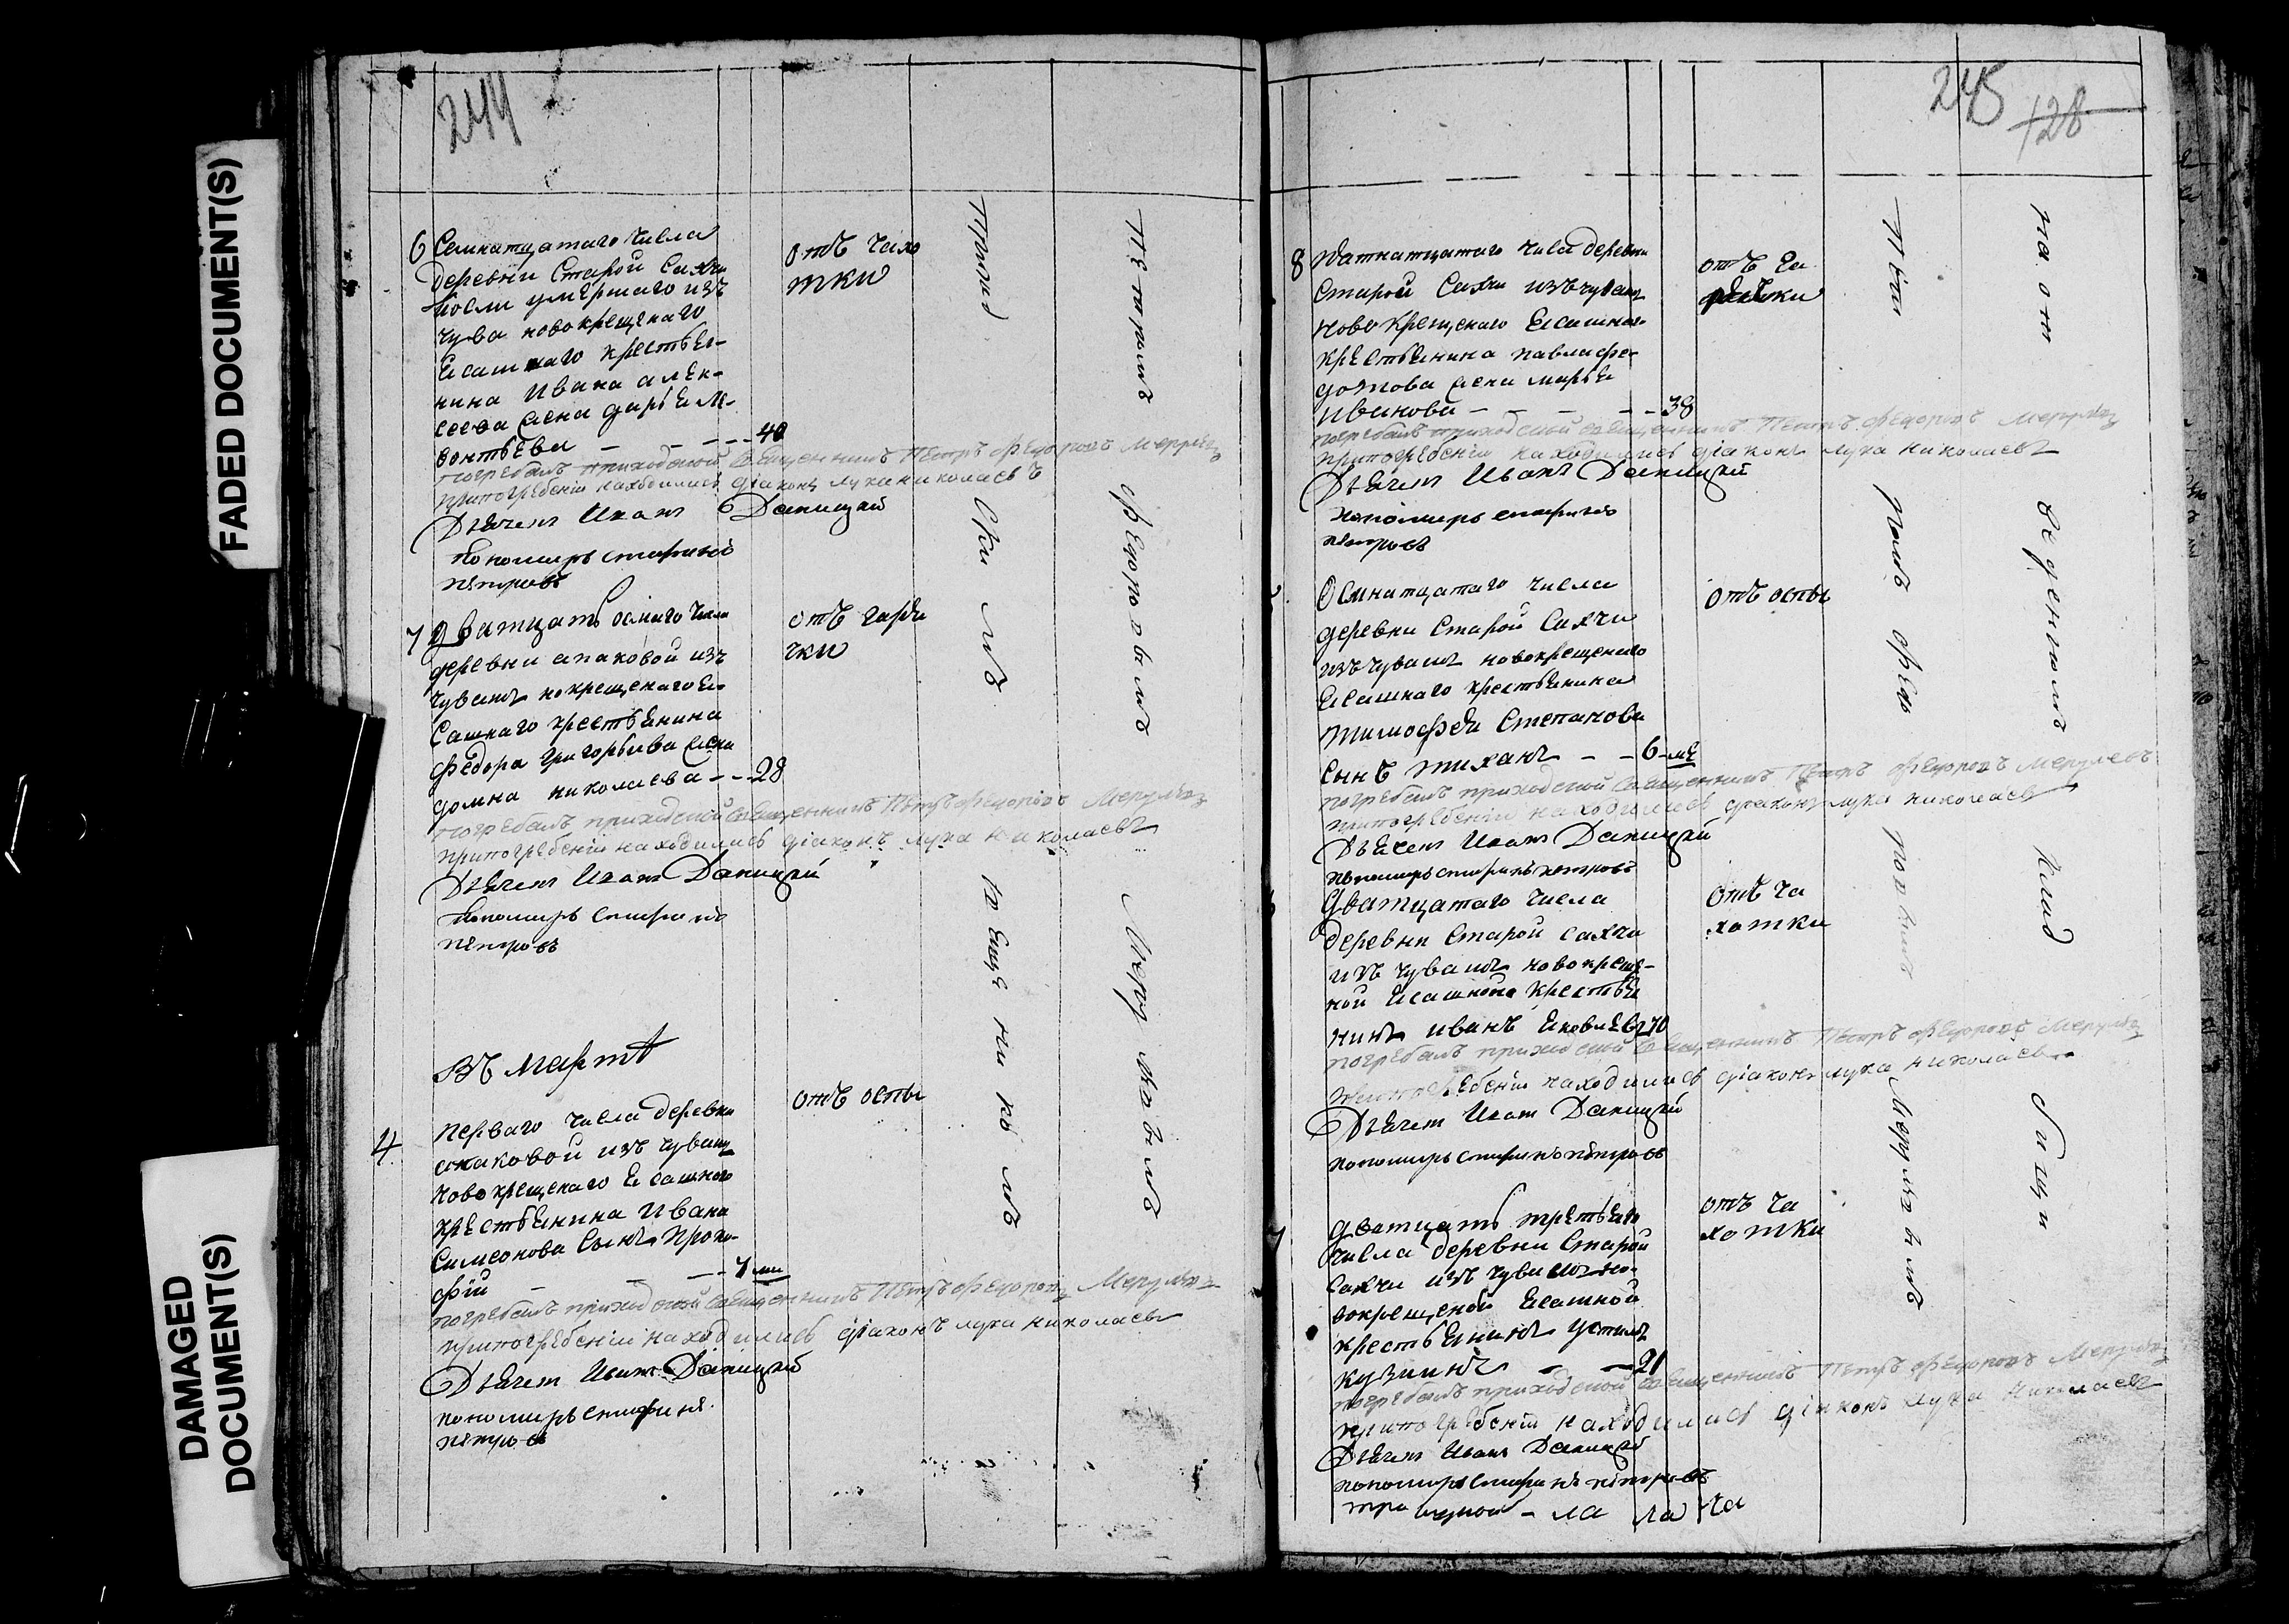 FADED DOCUMENT(S)
DAMAGED
DOCUMENT(S)
244
6 Семнатцатаго числа
деревни Старой Сахчи
после умершаго изъ
чува новокрещенаго
ясашнаго крестья-
нина Ивана алек-
сеева жена дарья Ле-
онтьева - - - - 40
отъ чахо
тки
погребалъ приходской священникъ Петръ Федоровъ
при погребеніи находились діаконъ лука николаевъ
Дьячекъ Иванъ Даницкой
пономарь
петровъ
7 Дватцать осмаго числа
деревни апаковой изъ
чувашъ нокрещенаго я-
сашнаго крестьянина
Федора Григорьева жена
домна николаева - - 28
отъ гаря
чки
погребалъ приходской священникъ Петръ Федоровъ
при погребеніи находились діаконъ лука николаевъ
Дьячекъ Иванъ Даницкой
пономарь
петровъ
Въ мартѣ
4 перваго числа деревни
апаковой изъ чувашъ
новокрещенаго ясашнаго
крестьянина Ивана
Симеонова сынъ Проко-
фій - - - 7
отъ оспы
погребалъ приходской священникъ Петръ Федоровъ
при погребеніи находились діаконъ лука николаевъ
Дьячекъ Иванъ Даницкой
пономарь
петровъ
Приход
ски мъ
священи ко мъ
Петромъ
Федоровымъ
245
128
8 Пятнатцатаго числа деревни
Старой Сахчи изъ чувашъ
новокрещенаго ясашнаго
крестьянина павла фе-
дотова жена марья
Иванова - - - - 38
отъ га
рячки
погребалъ приходской священникъ Петръ Федоровъ
при погребеніи находились діаконъ лука николаевъ
Дьячекъ Иванъ Даницкой
пономарь
петровъ
Осмнатцатаго числа
деревни Старой Сахчи
изъ чувашъ новокрещенаго
ясашнаго крестьянина
тимофея Степанова
сынъ тиханъ - - 6
отъ оспы
погребалъ приходской священникъ Петръ Федоровъ
при погребеніи находились діаконъ лука николаевъ
Дьячекъ Иванъ Даницкой
пономарь петровъ
Дватцатаго числа
деревни Старой сахчи
изъ чувашъ новокреще-
ной ясашной крестья
нинъ иванъ яковлевъ 70
отъ ча
хотки
погребалъ приходской священникъ Петръ Федоровъ
при погребеніи находились діаконъ лука николаевъ
Дьячекъ Иванъ Даницкой
пономарь петровъ
дватцать третьяго
числа деревни Старой
Сахчи изъ чувашъ но-
вокрещеной ясашной
крестьянинъ устинъ
кузминъ - - 21
отъ ча
хотки
погребалъ приходской священникъ Петръ Федоровъ
при погребеніи находились діаконъ лука николаевъ
Дьячекъ Иванъ Даницкой
пономарь петровъ
Пе
тромъ Фе
доровымъ